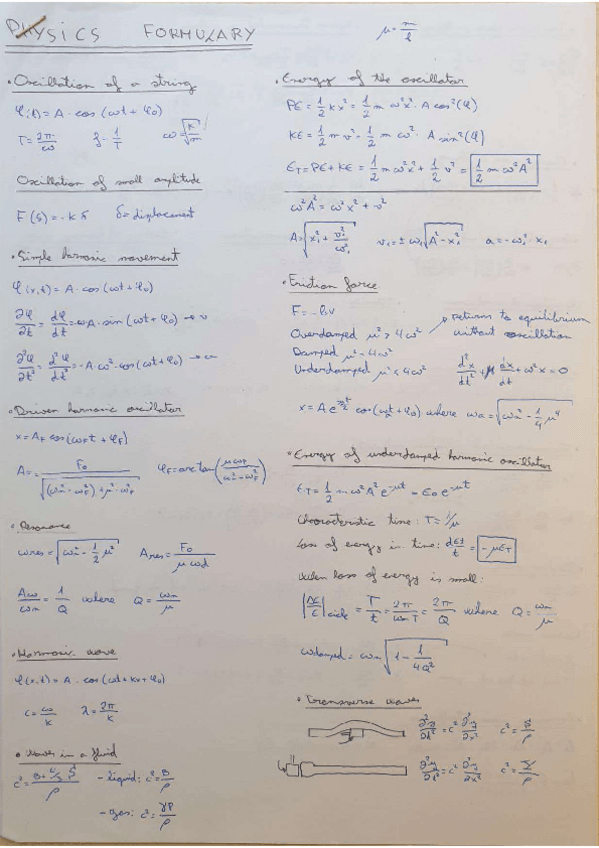 PHYSICS FORMULARY
μ = m/l
• Oscillation of a string
φ(t) = A · cos (ωt + φ0)
T = 2π/ω    f = 1/T    ω = √(k/m)
Oscillation of small amplitude
F(δ) = -k δ    δ = displacement
• Simple harmonic movement
φ(x,t) = A · cos (ωt + φ0)
∂φ/∂t = dφ/dt = -ωA · sin (ωt + φ0) → v
∂²φ/∂t² = d²φ/dt² = -A · ω² · cos (ωt + φ0) → a
• Driven harmonic oscillator
x = AF cos (ωF t + φF)
A = F0/√((ωn² - ωF²) + μ² · ωF)    φF = arctan (μωF/(ωn² - ωF²))
• Resonance
ωres = √(ωn² - 1/2 μ²)    Ares = F0/(μ ωd)
Δω/ωn = 1/Q where Q = ωn/μ
• Harmonic wave
φ(x,t) = A · cos (ωt + kx + φ0)
c = ω/k    λ = 2π/k
• Waves in a fluid
- liquid: c² = B/ρ
- gas: c² = γP/ρ
• Energy of the oscillator
PE = 1/2 k x² = 1/2 m ω² x² · A cos² (φ)
KE = 1/2 m v² = 1/2 m ω² · A sin² (φ)
ET = PE + KE = 1/2 m ω² x² + 1/2 v² = 1/2 m ω² A²
ω² A² = ω² x² + v²
A = √(x1² + v1²/ω1²)    v1 = ± ω1 √(A² - x1²)    a = -ω1² · x1
• Friction force
F = -bv
Overdamped μ² > 4ω² → returns to equilibrium without oscillation
Damped μ² = 4ω²
Underdamped μ² < 4ω²    d²x/dt² + μ dx/dt + ω² x = 0
x = A e^(-μt/2) cos (ωt + φ0) where ωd = √(ωn² - 1/4 μ²)
• Energy of underdamped harmonic oscillator
ET = 1/2 m ω² A² e^-μt = E0 e^-μt
Characteristic time: T = 1/μ
Loss of energy in time: dET/t = -μET
When loss of energy is small:
|ΔE/E| cicle = T/t = 2π/ωn T = 2π/Q where Q = ωn/μ
ωdamped = ωn √(1 - 1/4Q²)
• Transverse waves
∂²y/∂t² = c² ∂²y/∂x²    c² = S/ρ
∂²y/∂t² = c² ∂²y/∂x²    c² = Y/ρ